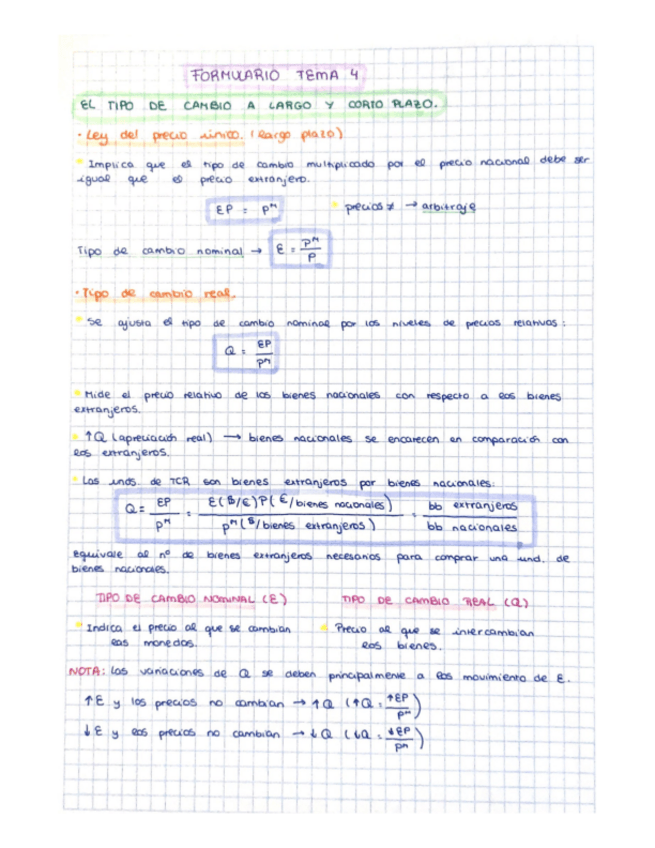 FORMULARIO TEMA 4
EL TIPO DE CAMBIO A LARGO Y CORTO PLAZO.
· Ley del precio único. (largo plazo)
Implica que el tipo de cambio multiplicado por el precio nacional debe ser
igual que el precio extranjero.
EP = P^M
precios ≠ → arbitraje
Tipo de cambio nominal → E = P^M / P
· Tipo de cambio real.
Se ajusta el tipo de cambio nominal por los niveles de precios relativos:
Q = EP / P^M
Mide el precio relativo de los bienes nacionales con respecto a los bienes
extranjeros.
↑Q (apreciación real) → bienes nacionales se encarecen en comparación con
los extranjeros.
Las unds. de TCR son bienes extranjeros por bienes nacionales:
Q = EP / P^M = E($/€)P(€/bienes nacionales) / P^M($/bienes extranjeros) = bb extranjeros / bb nacionales
equivale al nº de bienes extranjeros necesarios para comprar una und. de
bienes nacionales.
TIPO DE CAMBIO NOMINAL (E)
Indica el precio al que se cambian
las monedas.
TIPO DE CAMBIO REAL (Q)
Precio al que se intercambian
los bienes.
NOTA: Las variaciones de Q se deben principalmente a los movimiento de E.
↑E y los precios no cambian → ↑Q (↑Q = ↑EP / P^M)
↓E y los precios no cambian → ↓Q (↓Q = ↓EP / P^M)